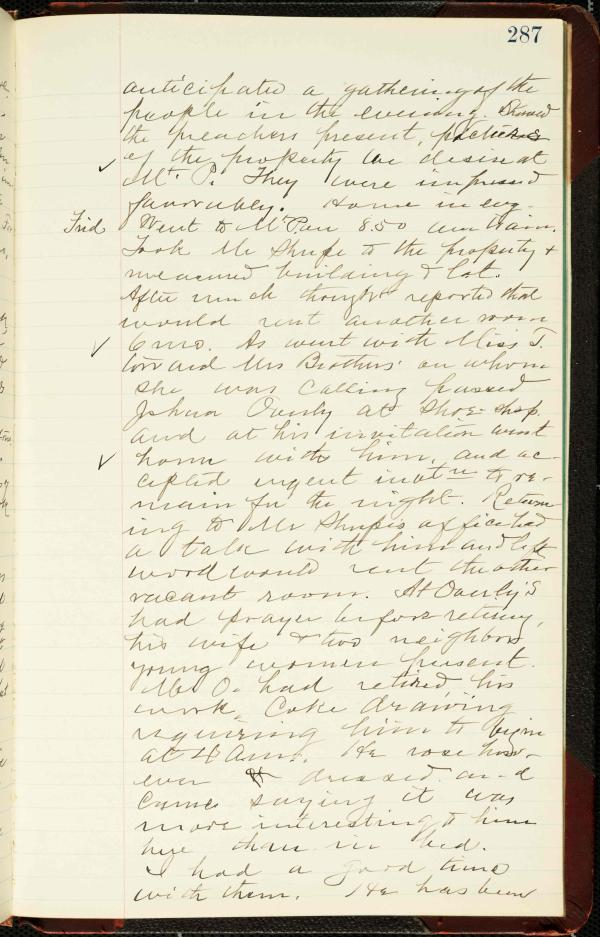 287
anticipated a gathering of the
people in the evening. Showed
the preachers present, pictures
of the property we desire at
Mt. P. They were impressed
favorably. Home in evg.
Frid. Went to Mt P. on 8.50 am train.
Took Mr Shupe to the property &
measured building & lot.
After much thought reported that
would rent another room
6 mo. As went with Miss T.
and Mrs Brothers' on whom
she was calling passed
Joshua Overly at shoe-shop
and at his invitation went
home with him, and ac-
cepted urgent invtn to re-
main for the night. Return-
ing to Mr Shupe's office had
a talk with him and left
word would rent the other
vacant room. At Overly's
had prayer before retiring,
his wife & two neighbor
young women present.
Mr O. had retired, his
work, Coke drawing
requiring him to begin
at 4 Am. He rose how-
ever & dressed and
came saying it was
more interesting to him
here than in bed.
I had a good time
with them. He has been